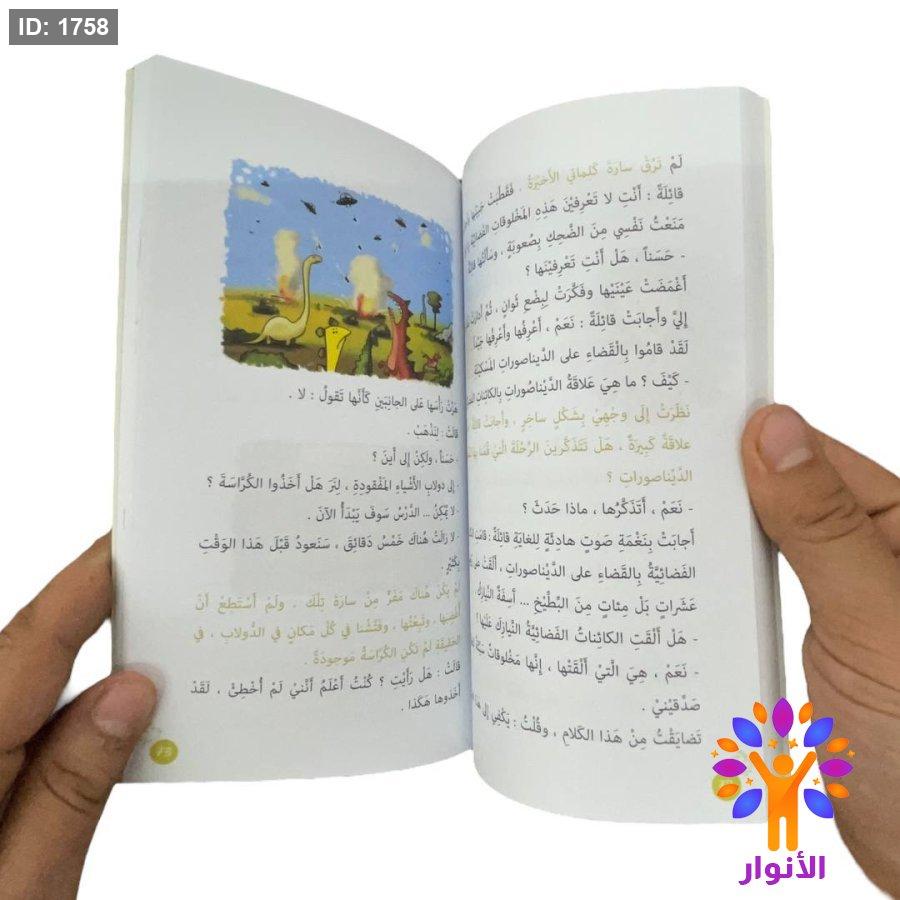 ID: 1758
لَمْ تَرُقْ سارَةَ كَلِماتي الأَخيْرَةُ . فَقَطَّبَتْ
قائِلَةً : أَنْتِ لا تَعْرِفيْنَ هَذِهِ المَخْلوقاتِ
مَنَعْتُ نَفْسِي مِنَ الضَّحِكِ بِصُعوبَةٍ ، وَسَأَلْتُها
- حَسَناً ، هَلْ أَنْتِ تَعْرِفيْنَها ؟
أَغْمَضَتْ عَيْنَيْها وفَكَّرَتْ لِبِضْعِ ثَوانٍ ، ثُمَّ
إِليَّ وأَجابَتْ قائِلَةً : نَعَمْ ، أَعْرِفُها وأَعْرِفُها
لَقَدْ قامُوا بِالْقَضاءِ على الدَّيناصوراتِ
- كَيْفَ ؟ ما هِيَ عَلاقَةُ الدَّيْناصُوراتِ بِالكائِناتِ
نَظَرَتْ إِلَى وجْهِيْ بِشَكْلٍ ساخِرٍ ، وأَجابَتْ
عَلاقَةٌ كَبِيرَةٌ ، هَلْ تَتَذَكَّرينَ الرِّحْلَةَ الَّتِيْ
الدَّيْناصوراتِ ؟
- نَعَمْ ، أَتَذَكَّرُها ، ماذا حَدَثَ ؟
أَجابَتْ بِنَغْمَةِ صَوتٍ هادِئَةٍ لِلغايَةِ قائِلَةً :
الفَضائِيَّةُ بِالقَضاءِ على الدَّيْناصوراتِ ، أَلْقَتْ
عَشَراتٍ بَلْ مِئاتٍ مِنَ البَّطِيْخِ ... آسِفَةٌ النَّيازِكِ
- هَلْ أَلْقَتِ الكائِناتُ الفَضائِيَّةُ النَّيازِكَ عَلَيْها ؟
- نَعَمْ ، هِيَ الَّتِيْ أَلْقَتْها ، إِنَّها مَخْلوقاتٌ
صَدِّقيْنِيْ .
تَضايَقْتُ مِنْ هَذا الكَلامِ ، وقُلْتُ : يَكْفِي إِلى
هَزَّتْ رَأْسَها عَلى الجانِبَيْنِ كَأَنَّها تَقولُ : لا .
قالَتْ : لِنَذْهَبْ .
- حَسَناً ، ولَكِنْ إِلى أَينَ ؟
- إِلى دولابِ الأَشْياءِ المَفْقودةِ ، لِنَرَ هَلْ أَخَذُوا الكُرَّاسَةَ ؟
- لا يُمْكِنُ ... الدَّرْسُ سَوفَ يَبْدَأُ الآنَ .
- لا زالَتْ هُناكَ خَمْسُ دَقائِقَ ، سَنَعودُ قَبْلَ هَذا الوَقْتِ
بِكَثيْرٍ .
لَمْ يَكُنْ هُناكَ مَفَرٌّ مِنْ سارَةَ تِلْكَ . ولَمْ أَسْتَطِعْ أَنْ
أُغْضِبَها ، وتَبِعْتُها ، وفَتَّشْنا فِي كُلِّ مَكانٍ في الدُّولابِ ، في
الحَقيقَةِ لَمْ تَكُنِ الكُرَّاسَةُ مَوجودَةً .
قالَتْ : هَلْ رَأَيْتِ ؟ كُنْتُ أَعْلَمُ أَنَّنِيْ لَمْ أُخْطِئْ ، لَقَدْ
أَخَذوها هَكَذا .
الأنوار